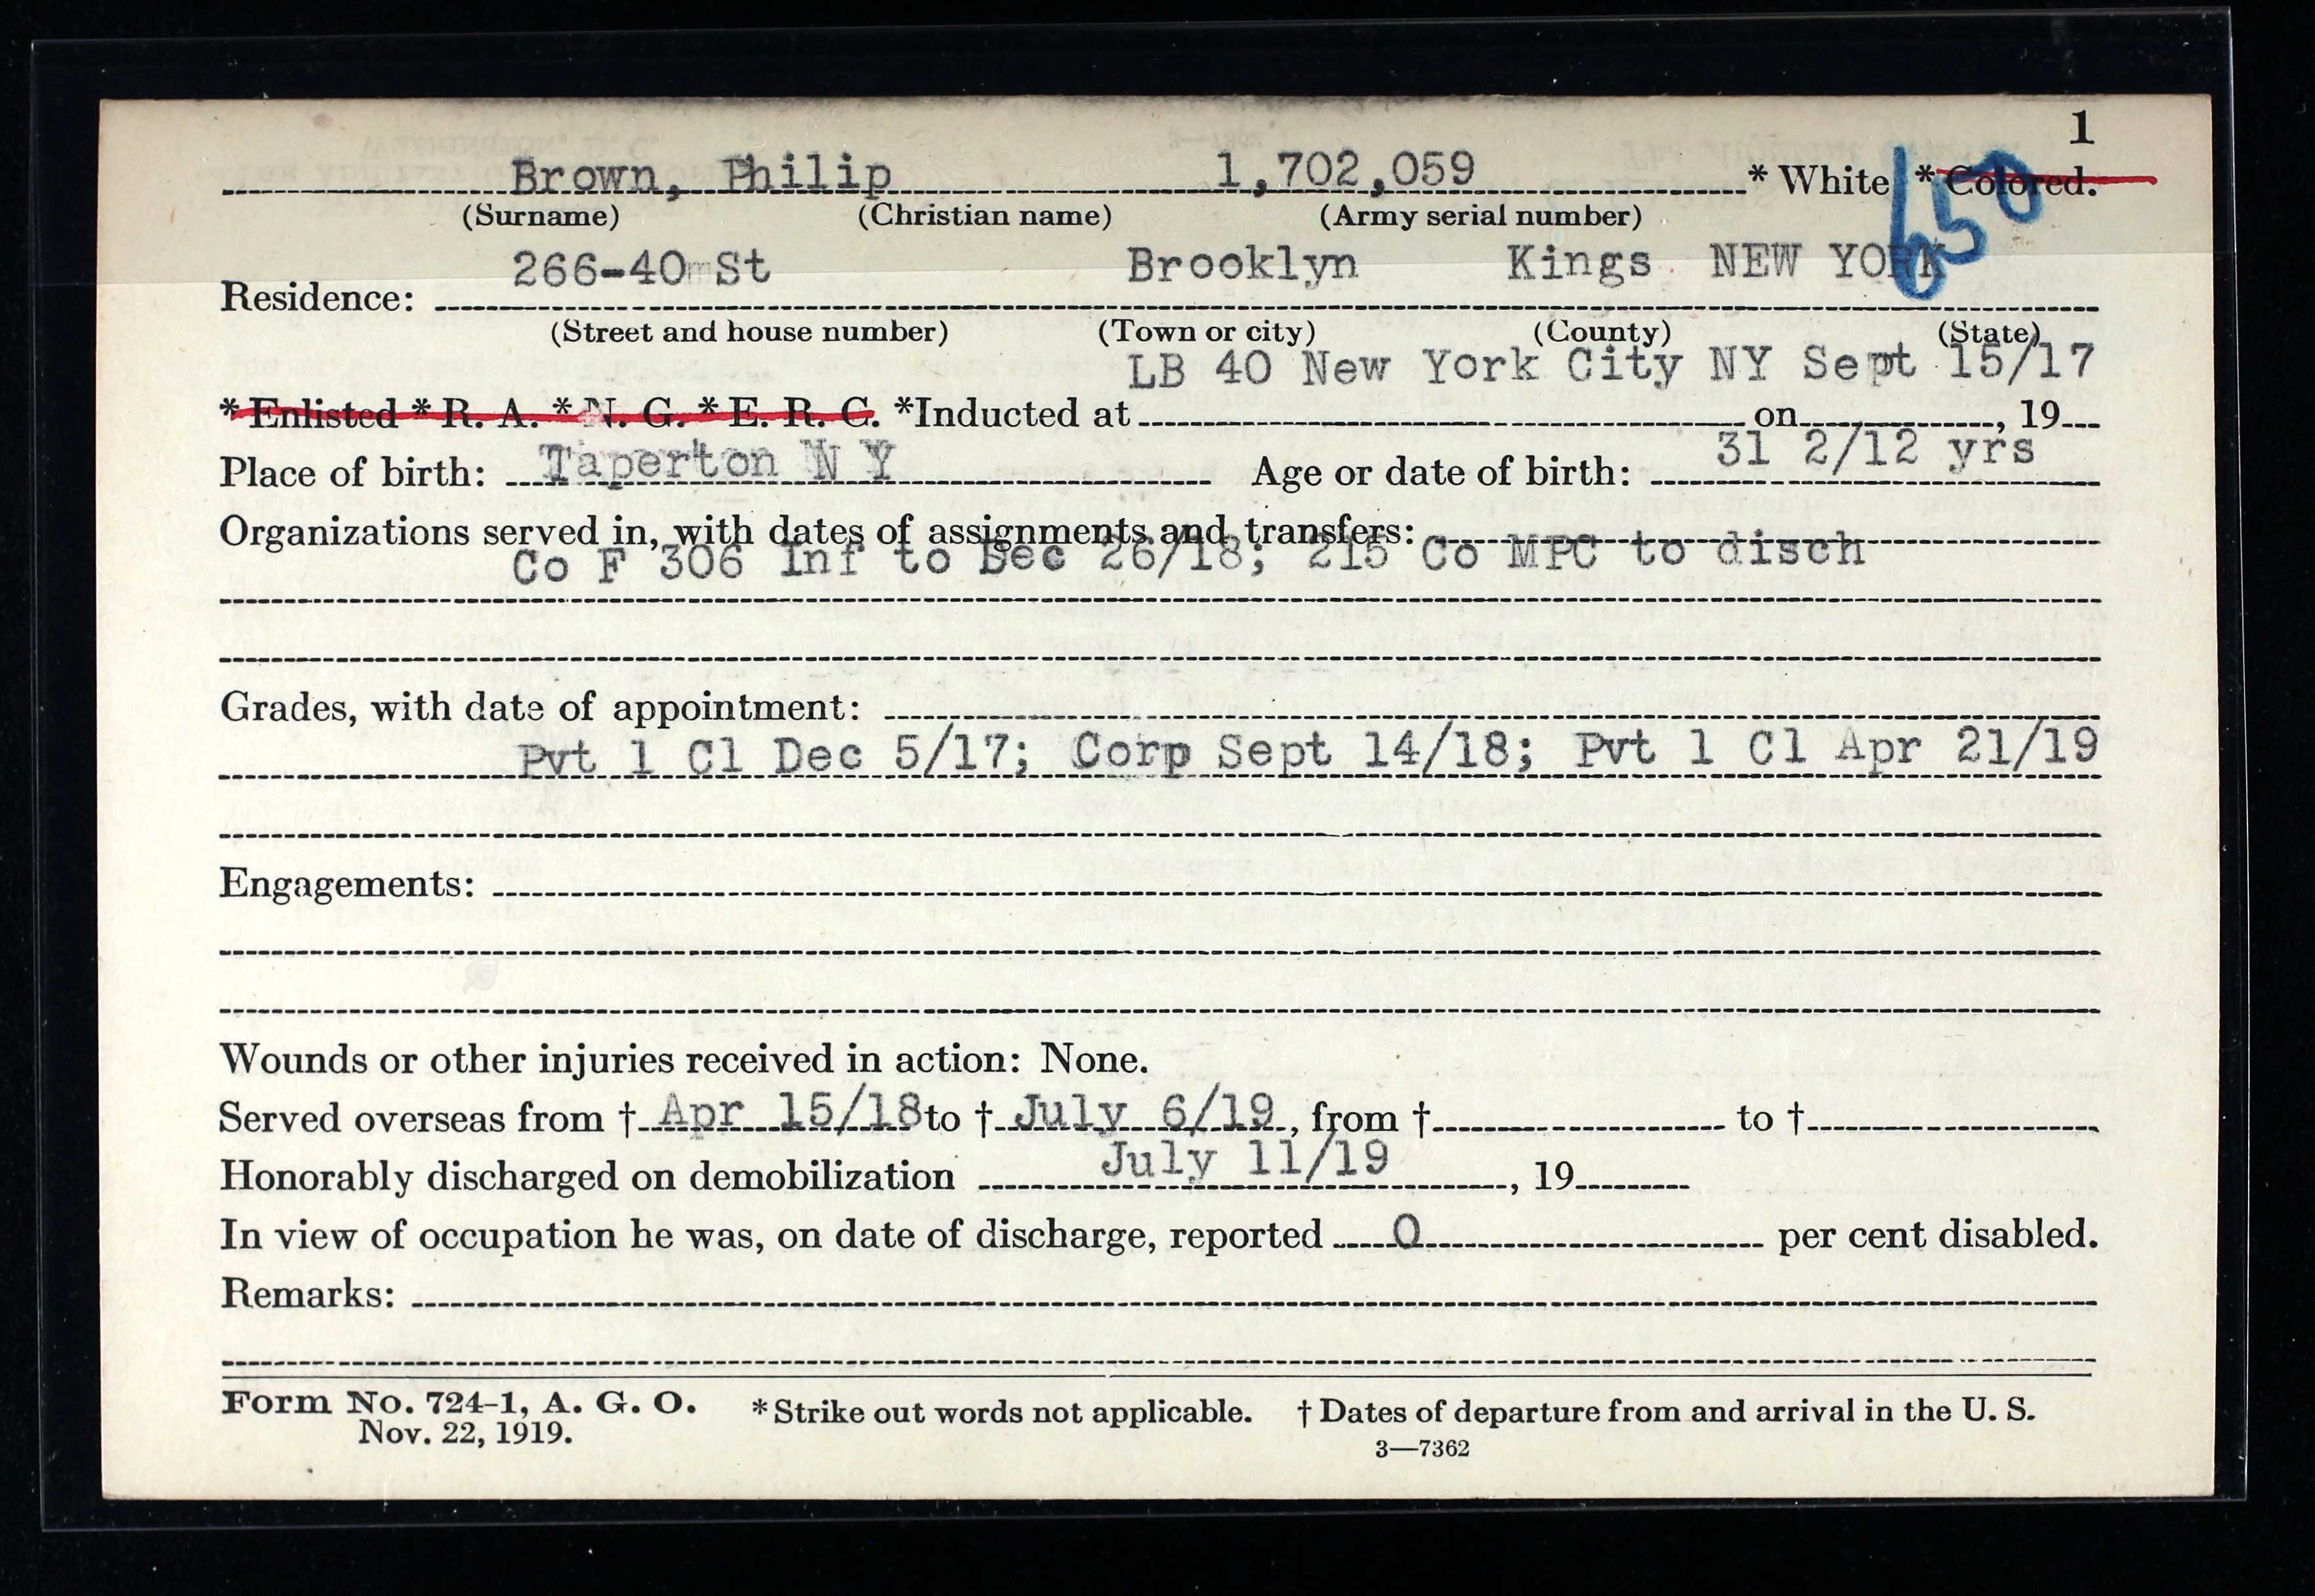 1
Brown, Philip 1,702,059 * White * Colored.
(Surname) (Christian name) (Army serial number)
650
266-40 St Brooklyn Kings NEW YORK
Residence:
(Street and house number) (Town or city) (County) (State)
LB 40 New York City NY Sept 15/17
* Enlisted * R. A. * N. G. * E. R. C. *Inducted at on , 19
Place of birth: Taperton N Y Age or date of birth: 31 2/12 yrs
Organizations served in, with dates of assignments and transfers:
Co F 306 Inf to Dec 26/18; 215 Co MPC to disch
Grades, with date of appointment:
Pvt 1 Cl Dec 5/17; Corp Sept 14/18; Pvt 1 Cl Apr 21/19
Engagements:
Wounds or other injuries received in action: None.
Served overseas from † Apr 15/18 to † July 6/19, from † to †
Honorably discharged on demobilization July 11/19, 19
In view of occupation he was, on date of discharge, reported 0 per cent disabled.
Remarks:
Form No. 724-1, A. G. O. * Strike out words not applicable. † Dates of departure from and arrival in the U. S.
Nov. 22, 1919. 3—7362